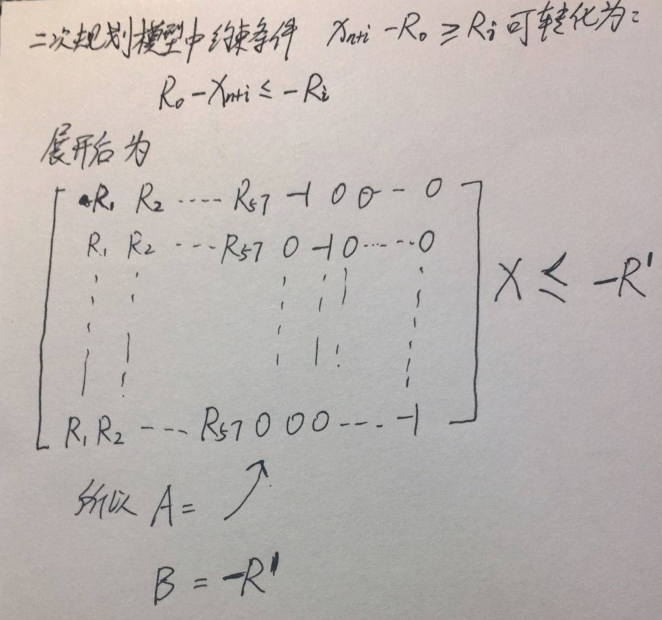 二次规划模型中约束条件 Xn+i - R₀ ≥ Ri 可转化为:
R₀ - Xn+i ≤ -Ri
展开后为
R₁ R₂ ---- R57 -1 0 0 - - 0
R₁ R₂ --- R57 0 -1 0 ---- 0
X ≤ -R'
R₁ R₂ --- R57 0 0 0 --- -1
所以 A =
B = -R'